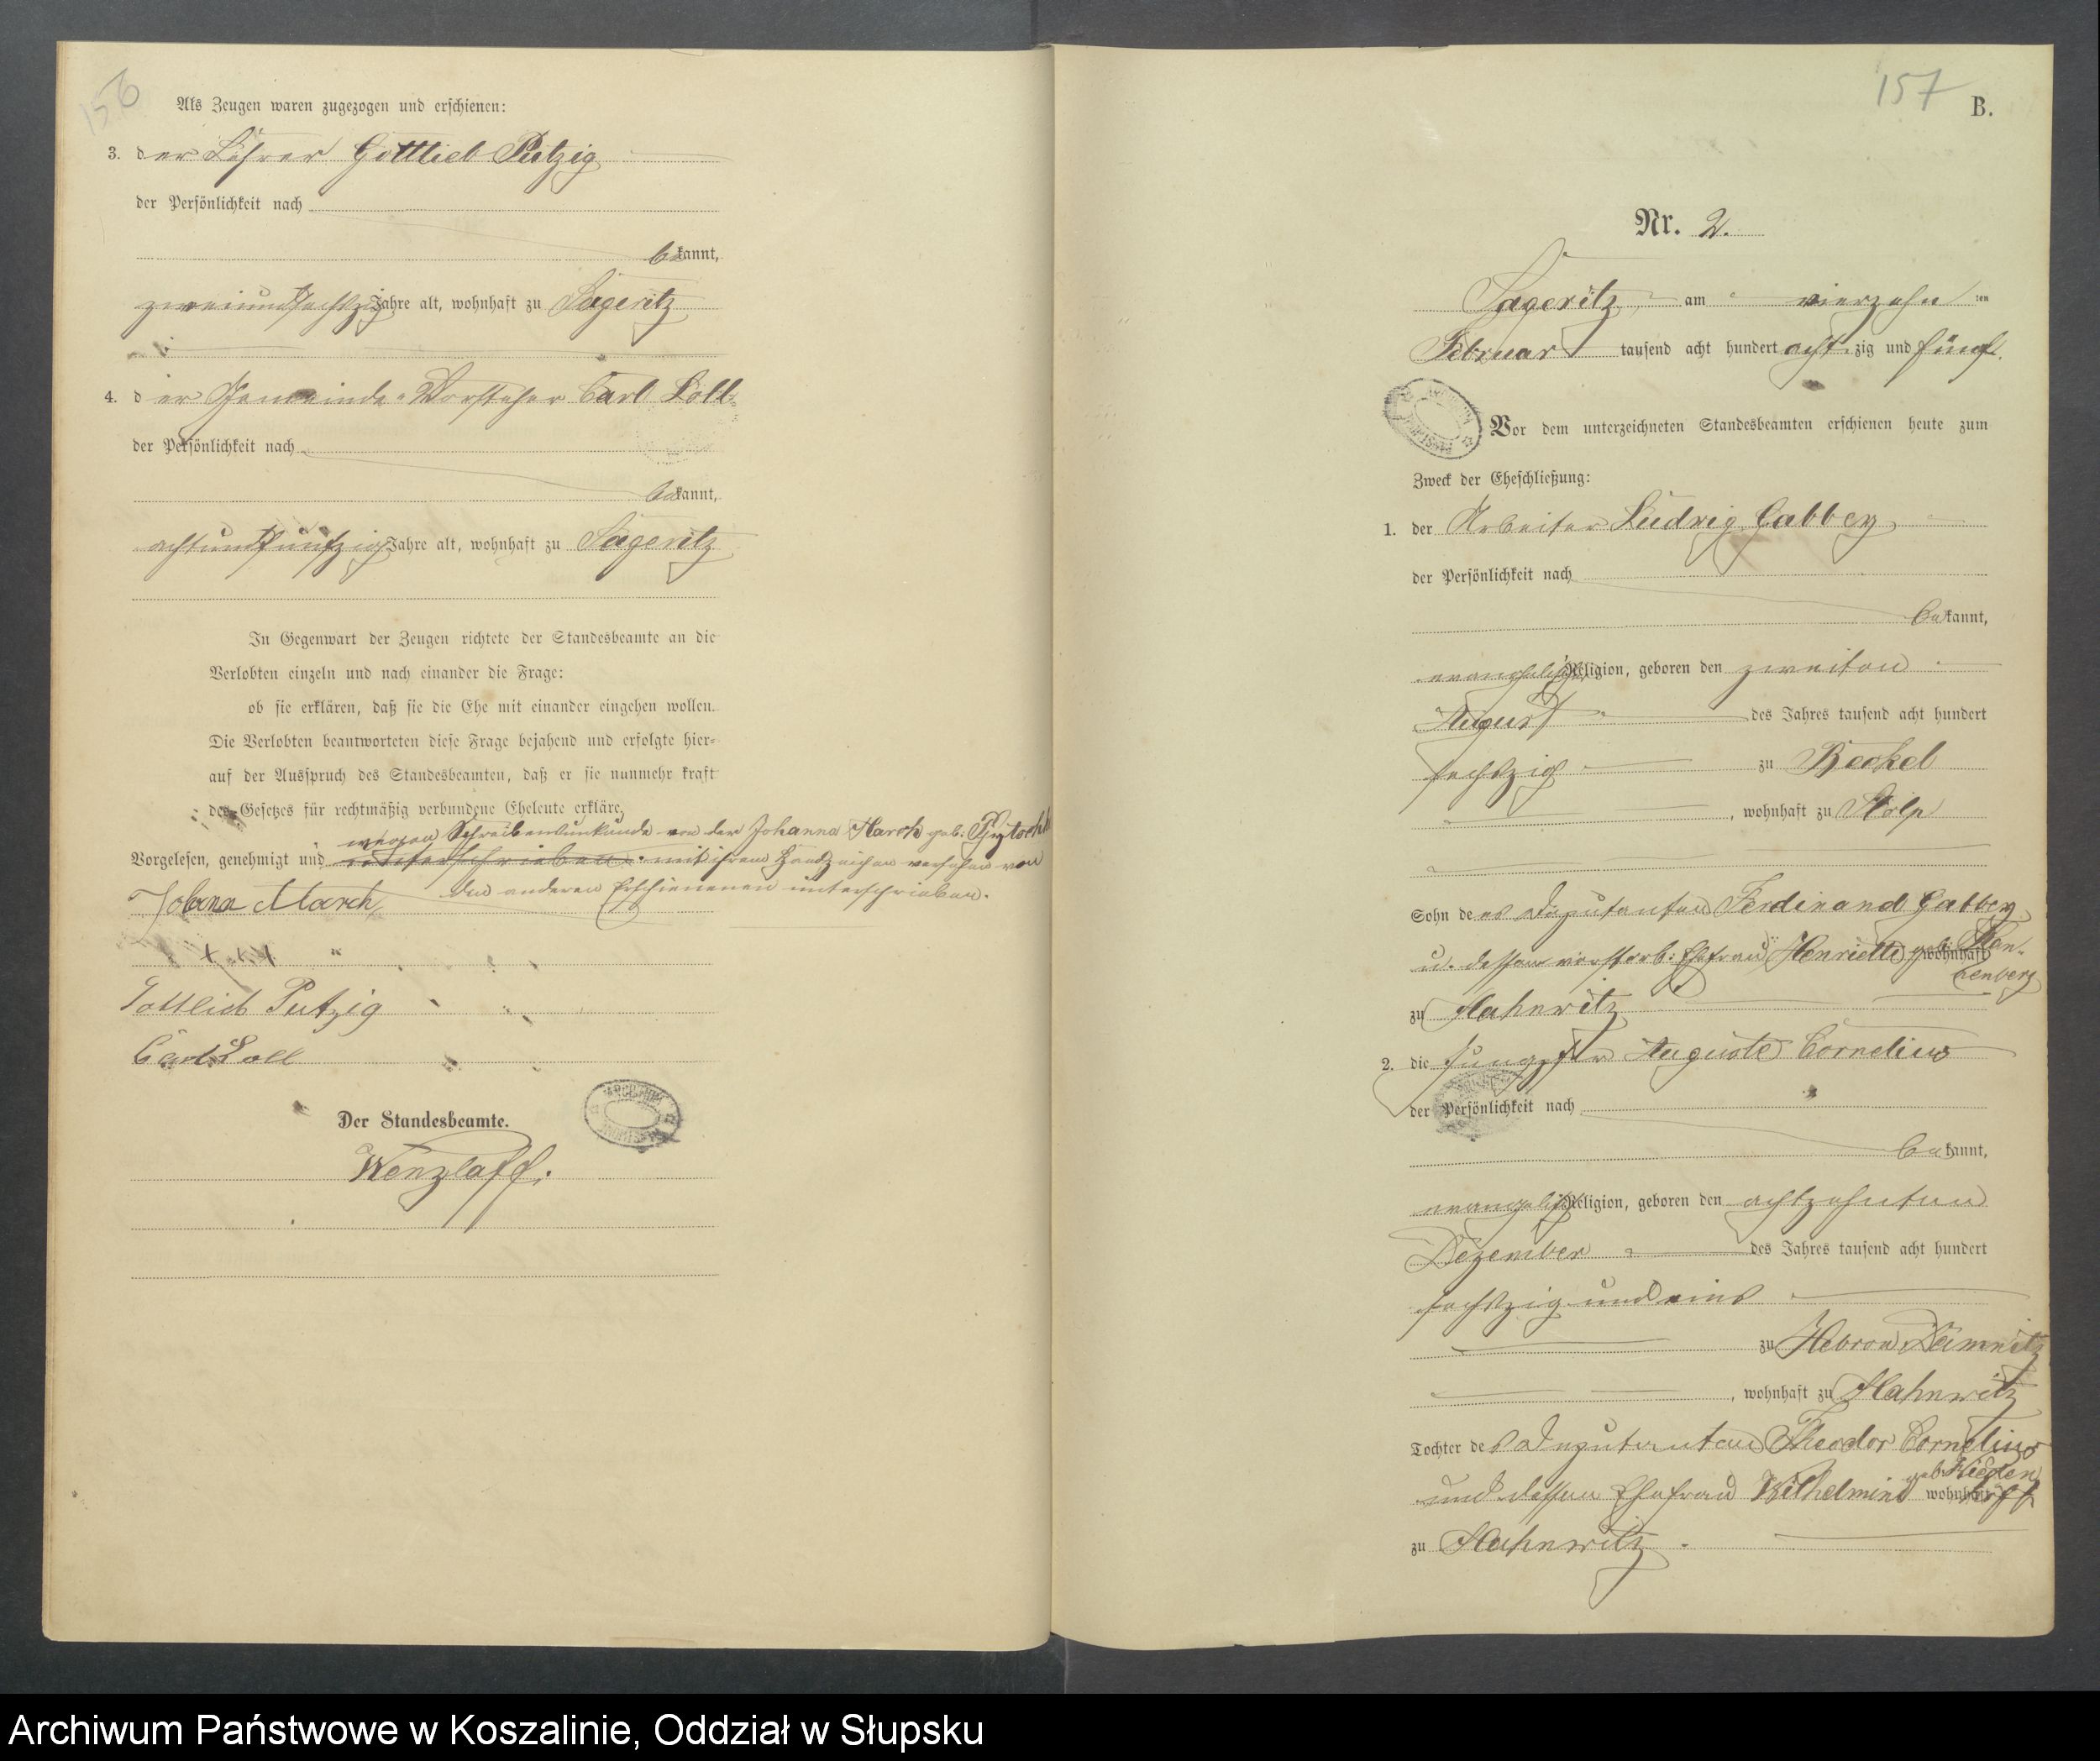 156
Als Zeugen waren zugezogen und erschienen:
3. der Lehrer Gottlieb Putzig
der Persönlichkeit nach
bekannt,
zweiundsechszig Jahre alt, wohnhaft zu Lageritz
4. der Gemeinde-Vorsteher Carl Loll
der Persönlichkeit nach
bekannt,
achtundfünfzig Jahre alt, wohnhaft zu Lageritz
In Gegenwart der Zeugen richtete der Standesbeamte an die
Verlobten einzeln und nach einander die Frage:
ob sie erklären, daß sie die Ehe mit einander eingehen wollen.
Die Verlobten beantworteten diese Frage bejahend und erfolgte hier-
auf der Ausspruch des Standesbeamten, daß er sie nunmehr kraft
des Gesetzes für rechtmäßig verbundene Eheleute erkläre.
wegen Schreibensunkunde von der Johanna March geb.
Vorgelesen, genehmigt und unterschrieben mit ihrem Handzeichen versehen von
den anderen Erschienenen unterschrieben.
March
+++
Gottlieb Putzig
Carl Loll
Der Standesbeamte.
Wenzlaff.
157
B.
Nr. 2.
Lageritz am vierzehn ten
Februar tausend acht hundert achtzig und fünf.
Vor dem unterzeichneten Standesbeamten erschienen heute zum
Zweck der Eheschließung:
1. der Arbeiter Ludwig Gabbey
der Persönlichkeit nach
bekannt,
evangelischer Religion, geboren den zweiten
August des Jahres tausend acht hundert
sechszig zu Reckel
, wohnhaft zu Stolp
Sohn des Deputanten Ferdinand Gabbey
u. dessen verstorb: Ehefrau Henriette geb. Ran-
nenberg wohnhaft
zu Hahnwitz
2. die Jungfer Auguste Cornelius
der Persönlichkeit nach
bekannt,
evangelischer Religion, geboren den achtzehnten
Dezember des Jahres tausend acht hundert
sechszig und eins
zu Hebron Damnitz
, wohnhaft zu Hahnwitz
Tochter des Deputanten Theodor Cornelius
und dessen Ehefrau Wilhelmine geb. wohnhaft
zu Hahnwitz.
Archiwum Państwowe w Koszalinie, Oddział w Słupsku